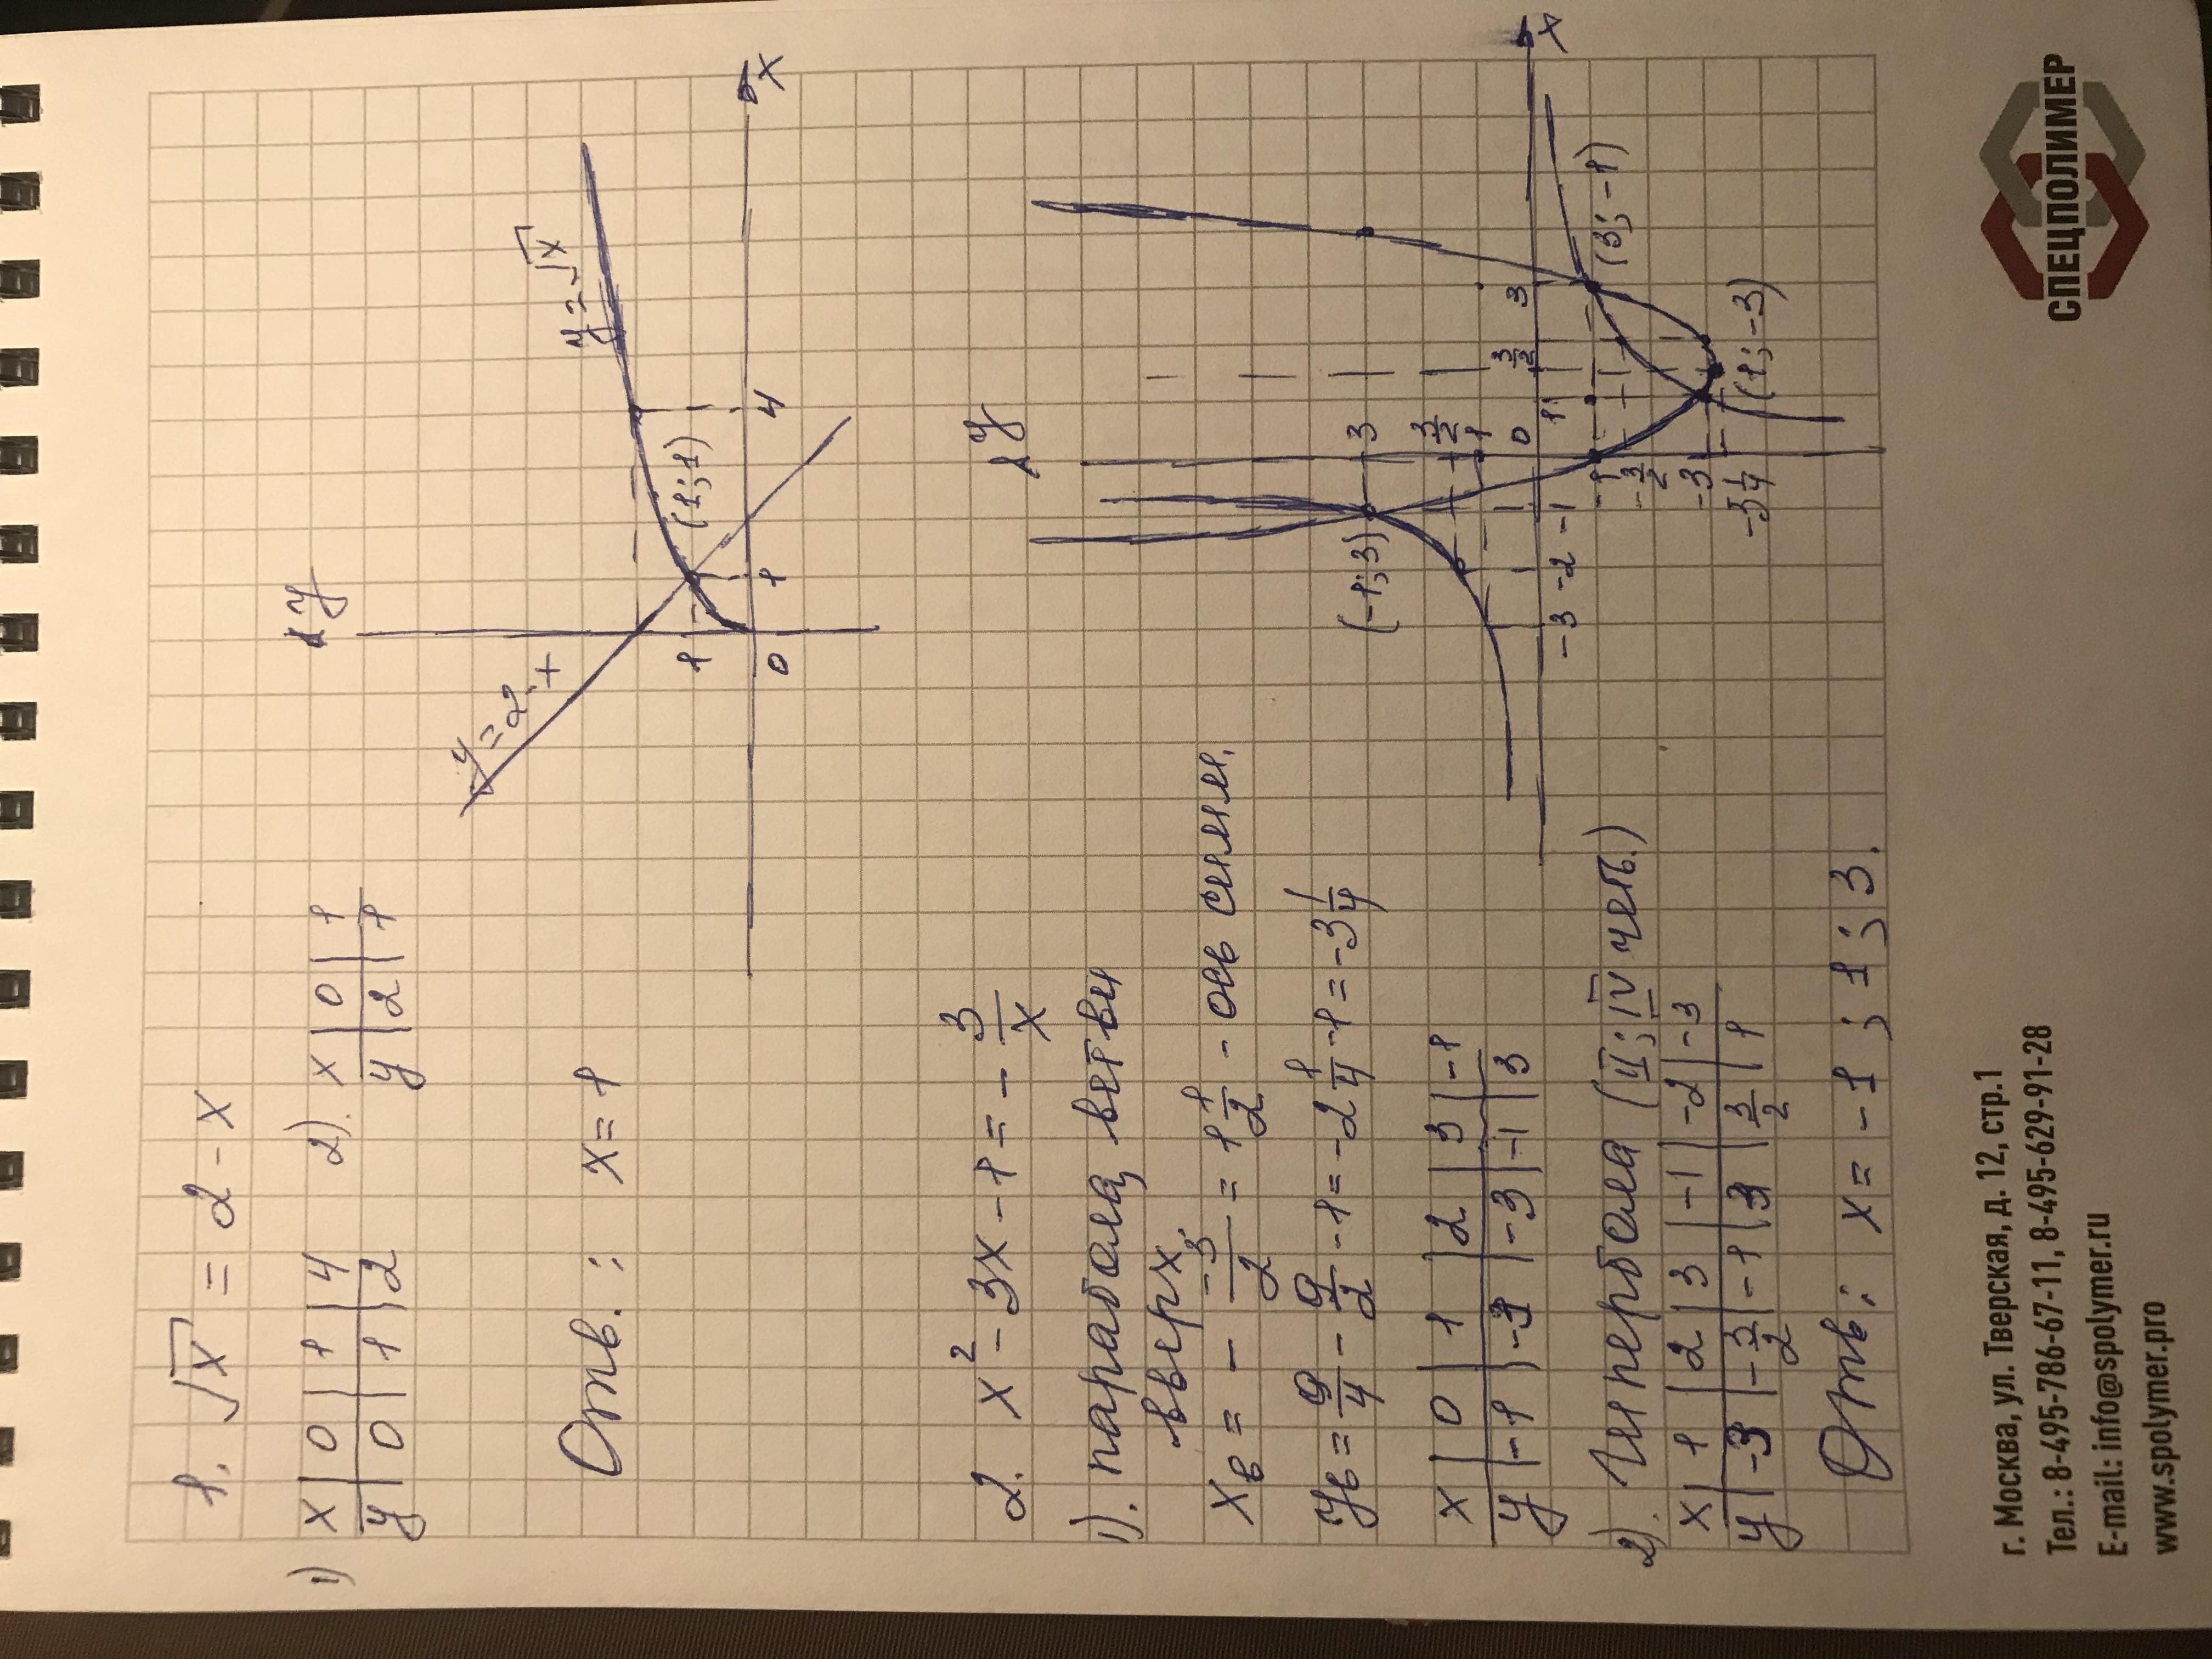 1. √x = 2 - x
1) x | 0 | 1 | 4
y | 0 | 1 | 2
2). x | 0 | 1
y | 2 | 1
Отв.: x = 1
y
y = 2 - x
y = √x
(1; 1)
1
0
1
4
x
2. x² - 3x - 1 = - 3/x
1). парабола, ветви
вверх.
xв = - -3/2 = 1 1/2 - ось симм.
yв = 9/4 - 9/2 - 1 = -2 1/4 - 1 = -3 1/4
x | 0 | 1 | 2 | 3 | -1
y | -1 | -3 | -3 | -1 | 3
2). Гипербола (II; IV чет.)
x | 1 | 2 | 3 | -1 | -2 | -3
y | -3 | -3/2 | -1 | 3 | 3/2 | 1
Отв.: x = -1 ; 1 ; 3.
y
(-1; 3)
3
3/2
1
0
-3 -2 -1
1
3/2
3
x
-1
-3/2
-3
-3 1/4
(3; -1)
(1; -3)
г. Москва, ул. Тверская, д. 12, стр.1
Тел.: 8-495-786-67-11, 8-495-629-91-28
E-mail: info@spolymer.ru
www.spolymer.pro
СПЕЦПОЛИМЕР